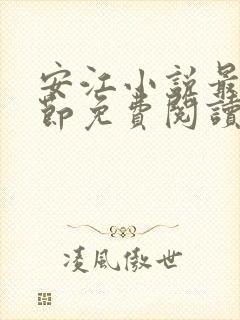 安江小說最
節免費閱讀
凌風傲世